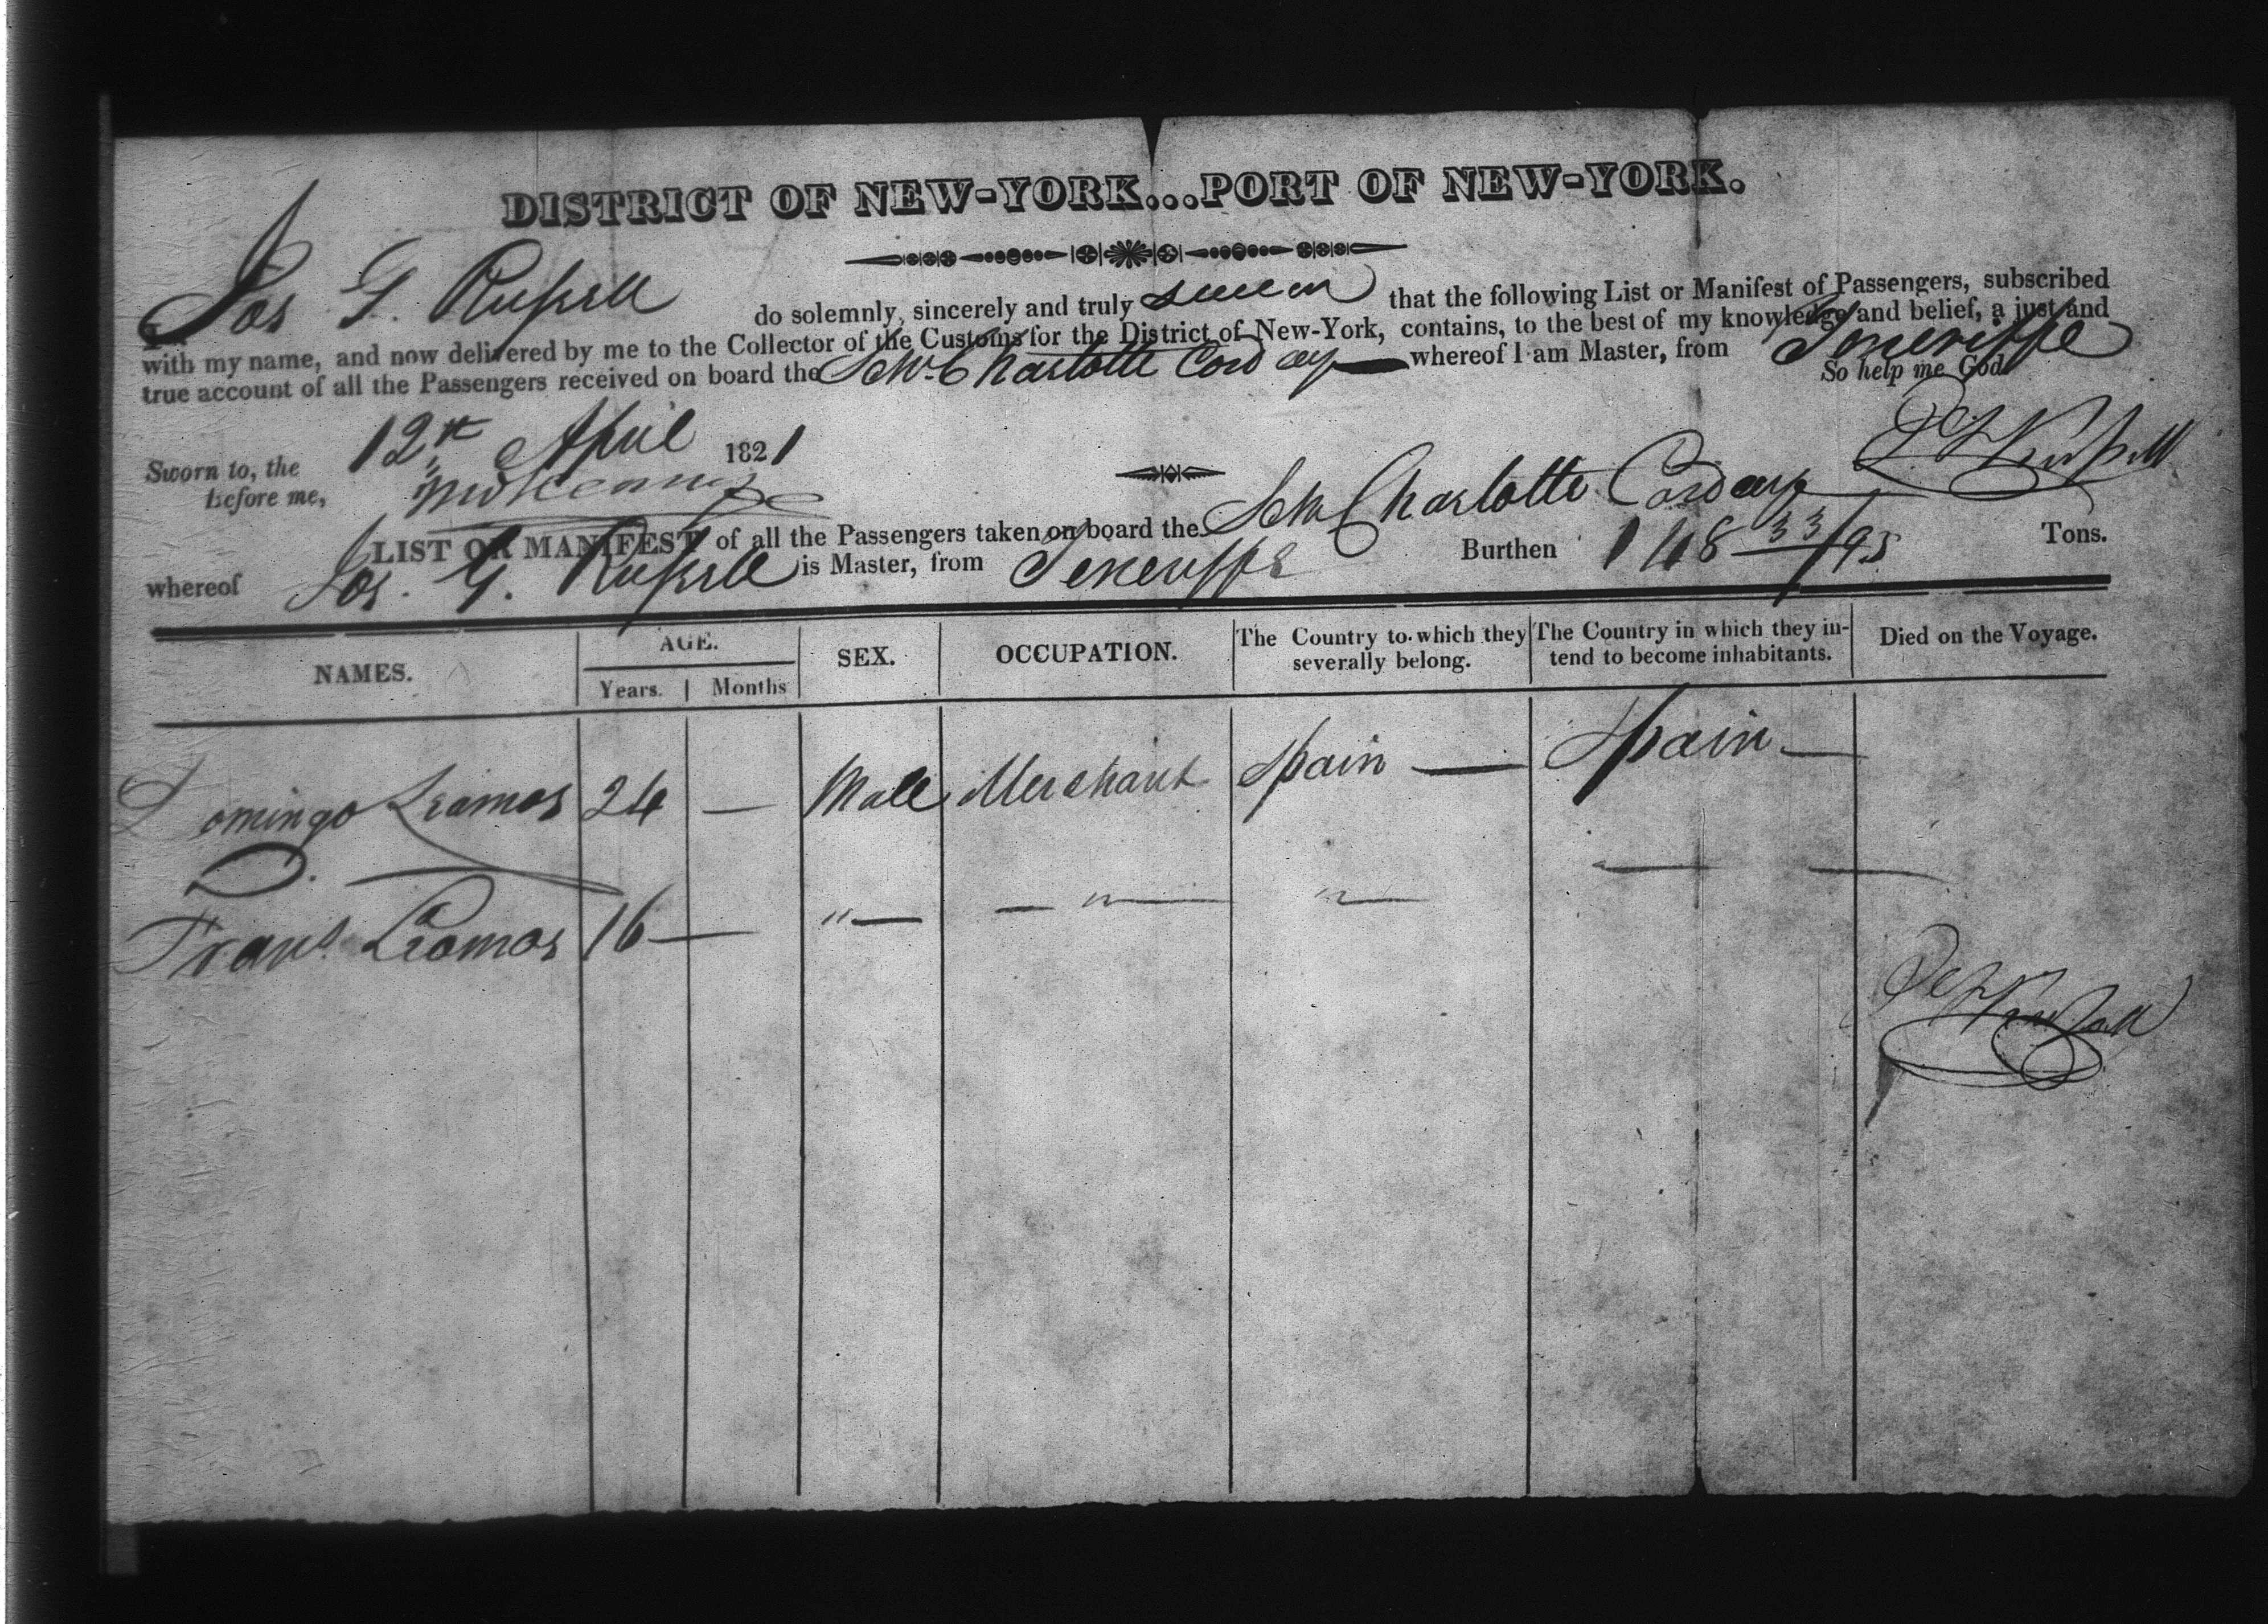 DISTRICT OF NEW-YORK...PORT OF NEW-YORK.
I Jos G. Russell do solemnly, sincerely and truly swear that the following List or Manifest of Passengers, subscribed
with my name, and now delivered by me to the Collector of the Customs for the District of New-York, contains, to the best of my knowledge and belief, a just and
true account of all the Passengers received on board the Schr Charlotte Corday whereof I am Master, from Teneriffe
So help me God.
Sworn to, the 12th April 1821
before me,
Russell
LIST OR MANIFEST of all the Passengers taken on board the Schr Charlotte Corday Burthen 148 33/95 Tons.
whereof Jos. G. Russell is Master, from Teneriffe
NAMES. AGE. SEX. OCCUPATION. The Country to which they severally belong. The Country in which they intend to become inhabitants. Died on the Voyage.
Years. Months
Domingo 24 — Male Merchant Spain — Spain —
16 — " — — " — " — — —